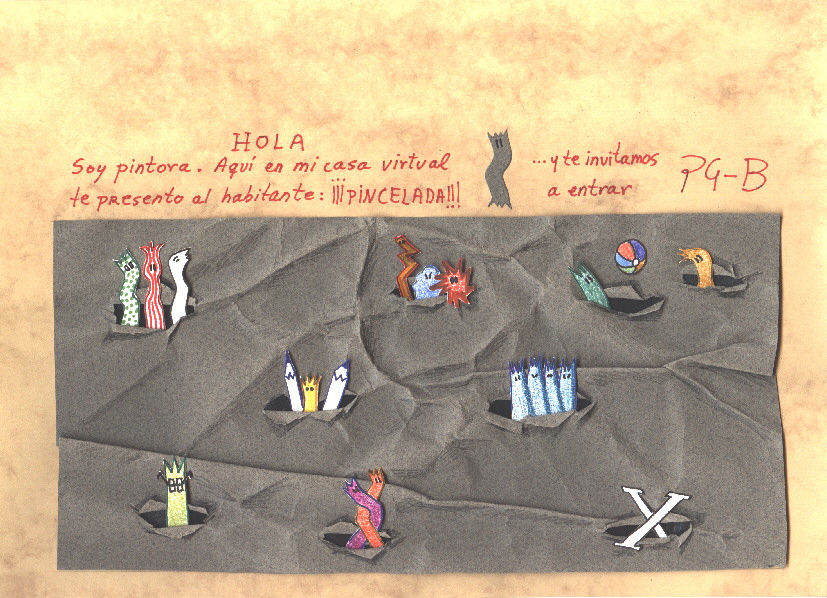 HOLA
Soy pintora. Aquí en mi casa virtual
te presento al habitante: ¡¡¡PINCELADA!!!
...y te invitamos
a entrar
PG-B
X